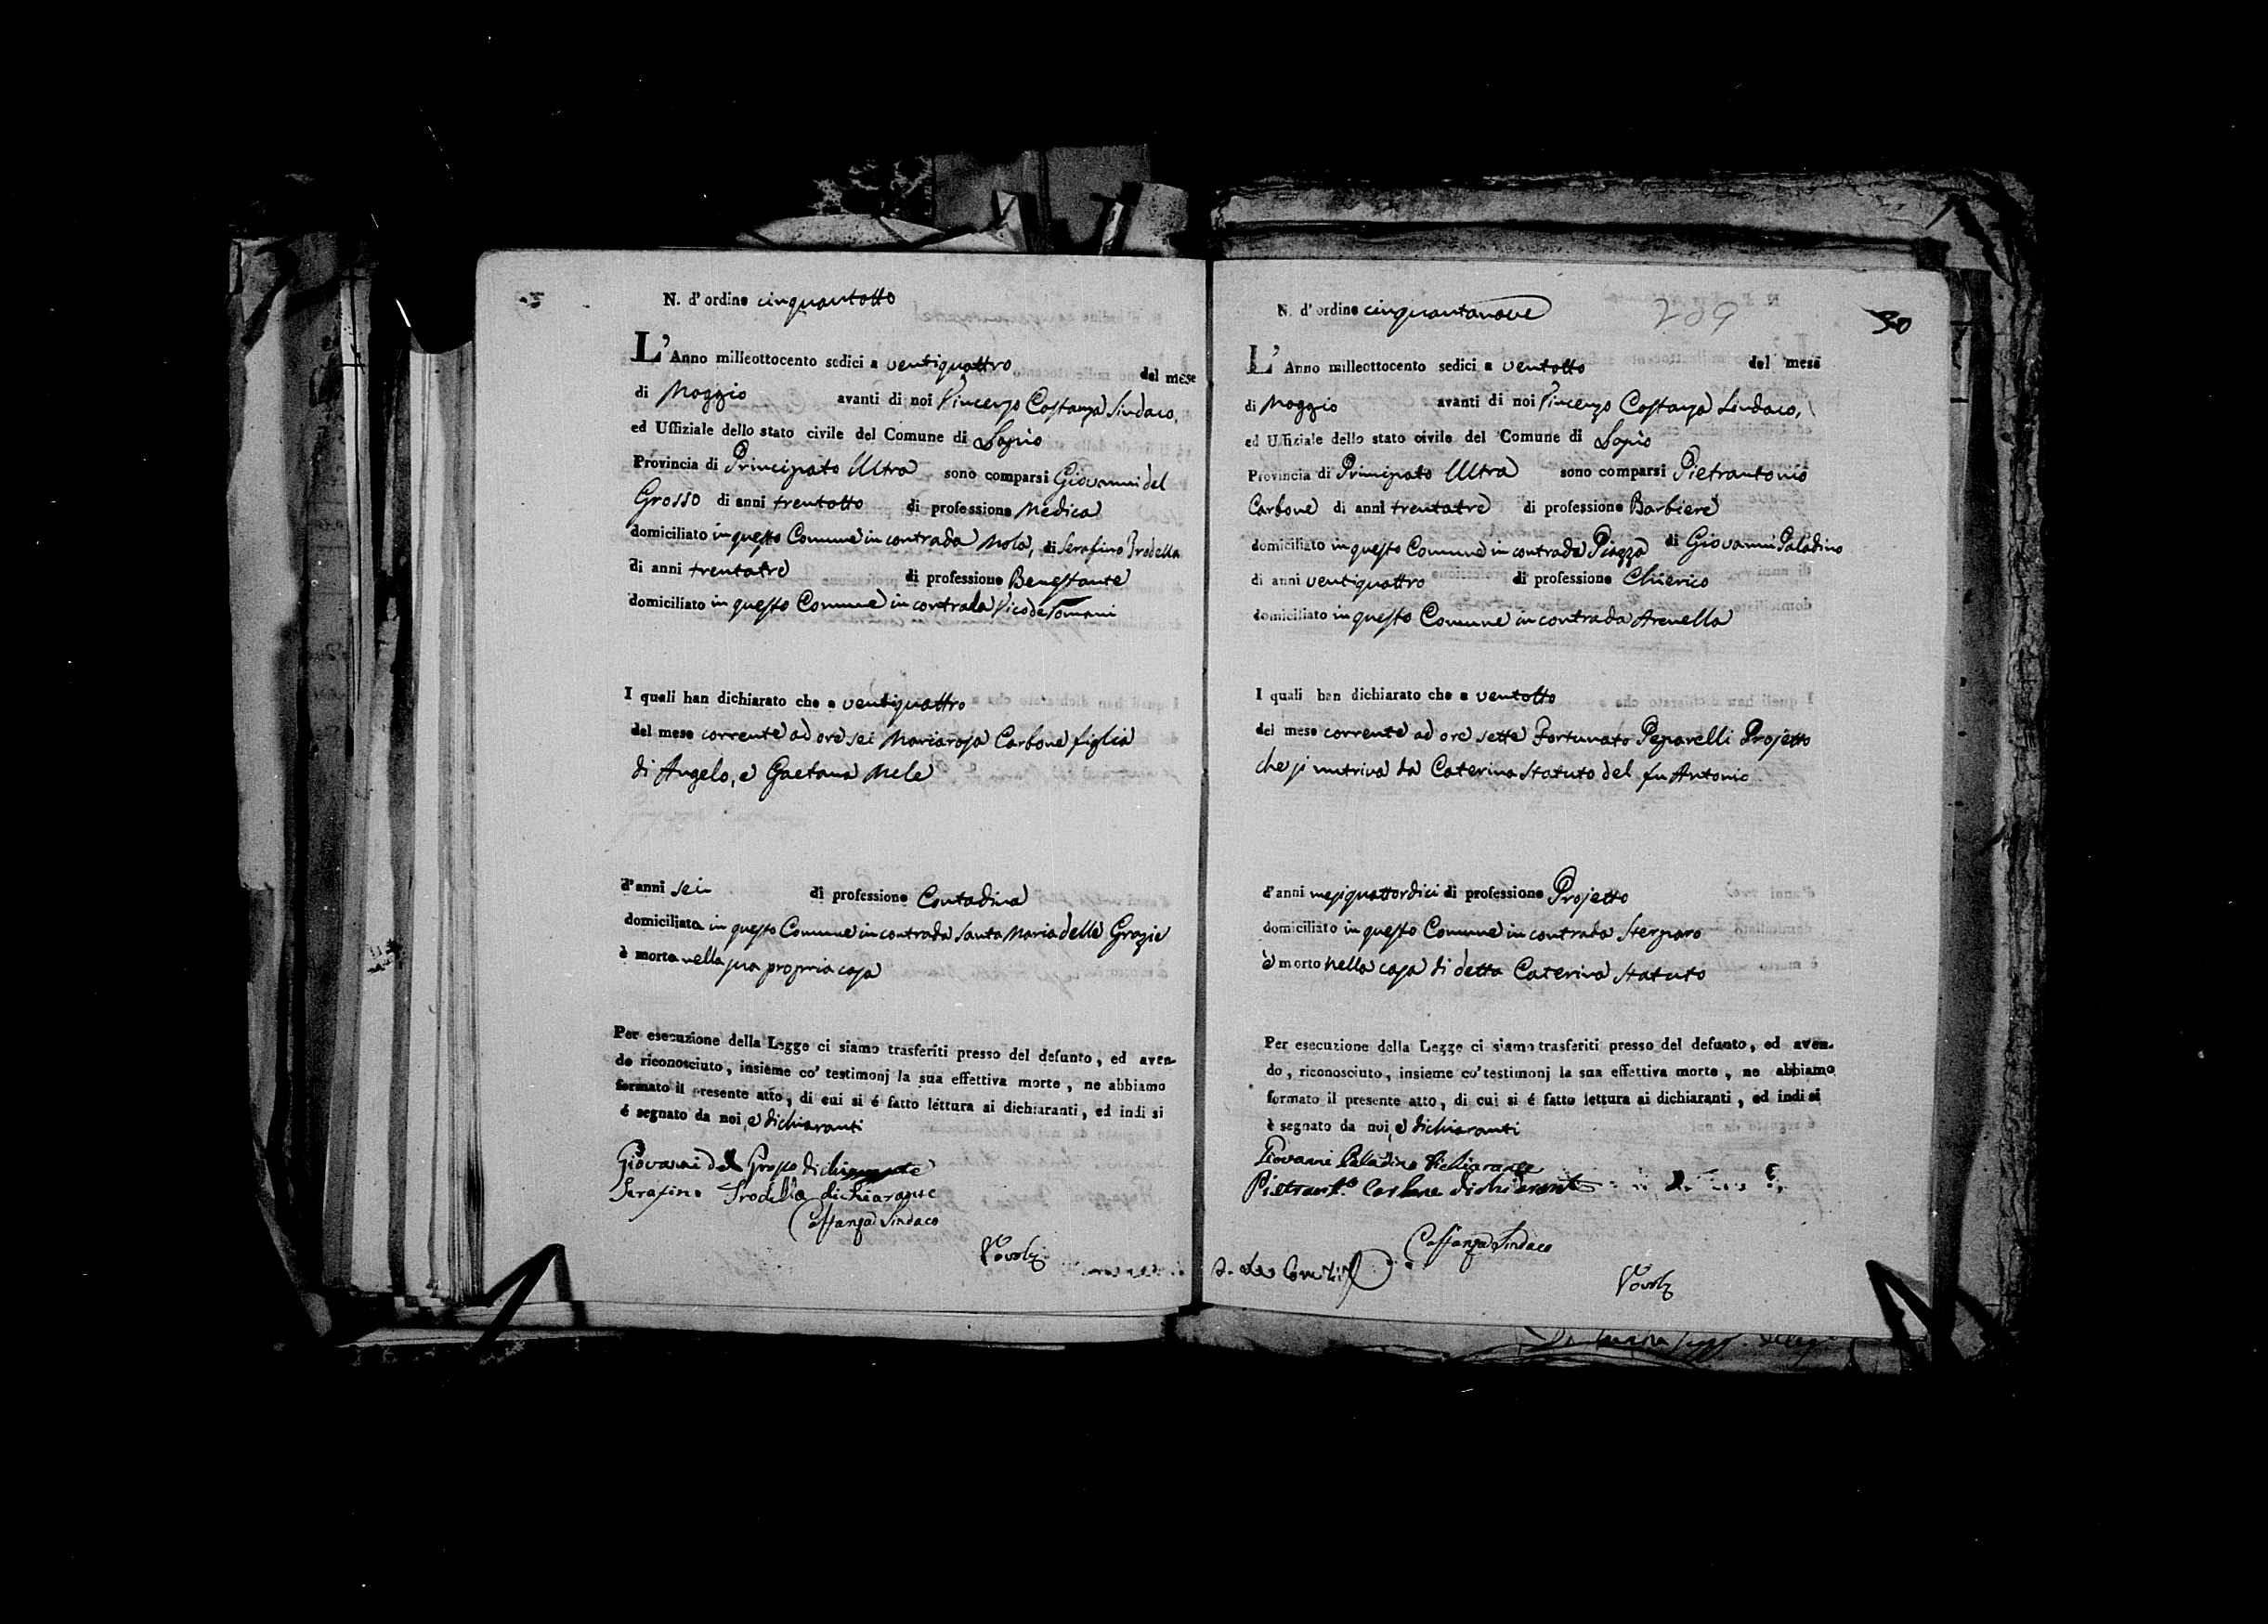 N. d'ordine cinquantotto
L'Anno milleottocento sedici a ventiquattro del mese
di Maggio avanti di noi Vincenzo Costanza Sindaco,
ed Uffiziale dello stato civile del Comune di Lapio
Provincia di Principato Ultra sono comparsi Giovanni del
Grosso di anni trentotto di professione Medico
domiciliato in questo Comune in contrada Mola, di Serafino Trodella
di anni trentatre di professione Benestante
domiciliato in questo Comune in contrada Vico de
I quali han dichiarato che a ventiquattro
del mese corrente ad ore sei Mariarosa Carbone figlia
di Angelo, e Gaetana Mele
d'anni sei di professione Contadina
domiciliata in questo Comune in contrada Santa Maria delle Grazie
è morta nella sua propria casa
Per esecuzione della Legge ci siamo trasferiti presso del defunto, ed aven-
do riconosciuto, insieme co' testimonj la sua effettiva morte, ne abbiamo
formato il presente atto, di cui si é fatto lettura ai dichiaranti, ed indi si
é segnato da noi, e dichiaranti
Giovanni del Grosso dichiarante
Serafino Trodella dichiarante
Costanza Sindaco
N. d'ordine cinquantanove 209 30
L'Anno milleottocento sedici a ventotto del mese
di Maggio avanti di noi Vincenzo Costanza Sindaco,
ed Uffiziale dello stato civile del Comune di Lapio
Provincia di Principato Ultra sono comparsi Pietrantonio
Carbone di anni trentatre di professione Barbiere
domiciliato in questo Comune in contrada Piazza di Giovanni Paladino
di anni ventiquattro di professione Chierico
domiciliato in questo Comune in contrada Arenella
I quali han dichiarato che a ventotto
del mese corrente ad ore sette Fortunato Peparelli Projetto
che si nutriva da Caterina Statuto del fu Antonio
d'anni mesi quattordici di professione Projetto
domiciliato in questo Comune in contrada Sterparo
è morto nella casa di detta Caterina Statuto
Per esecuzione della Legge ci siamo trasferiti presso del defunto, ed aven-
do, riconosciuto, insieme co' testimonj la sua effettiva morte, ne abbiamo
formato il presente atto, di cui si é fatto lettura ai dichiaranti, ed indi si
è segnato da noi, e dichiaranti
Giovanni Paladino dichiarante
Pietrant.º Carbone dichiarante
Costanza Sindaco